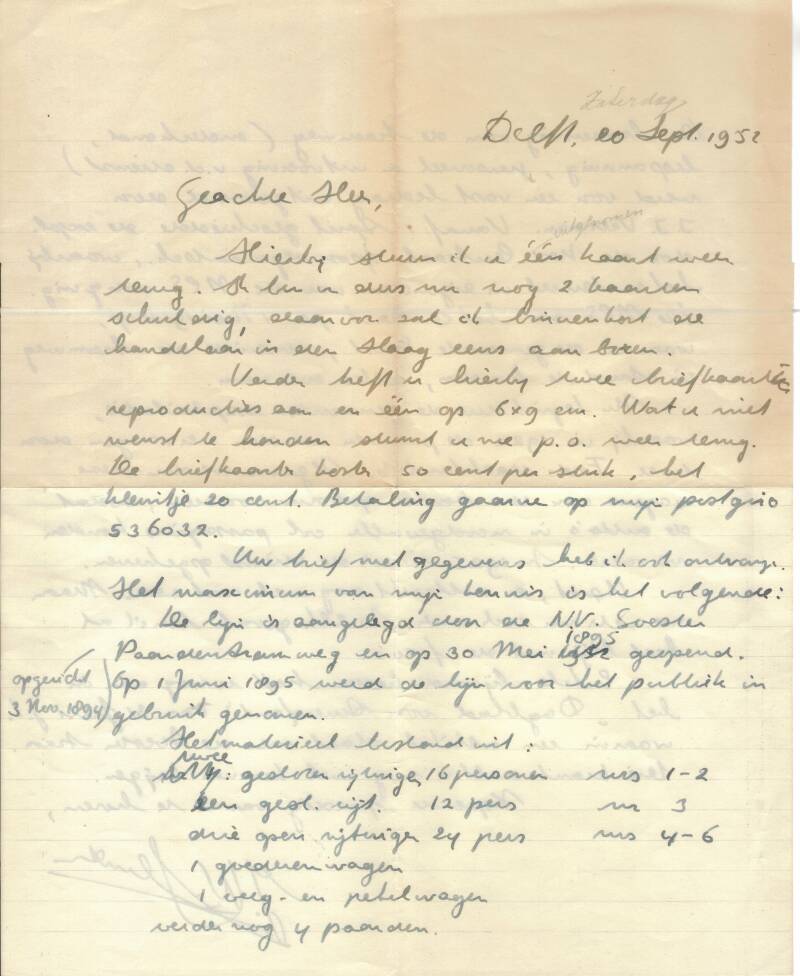 Zaterdag
Delft, 20 Sept. 1952
Geachte Heer,
uitgenomen
Hierbij stuur ik u één kaart weer
terug. Ik ben u dus nu nog 2 kaarten
schuldig, daarvoor zal ik binnenkort de
handelaar in den Haag eens aan boren.
Verder treft u, hierbij twee briefkaarten
reproducties aan en één op 6x9 cm. Wat u niet
wenst te houden stuurt u me p.o. weer terug.
De briefkaarten kosten 50 cent per stuk, het
kleintje 20 cent. Betaling gaarne op mijn postgiro
536032.
Uw brief met gegevens heb ik ook ontvangen.
Het maximum van mijn kennis is het volgende:
De lijn is aangelegd door de N.V. Soester
Paardentramweg en op 30 Mei 1895 geopend.
opgericht
3 Nov. 1894
Op 1 Juni 1895 werd de lijn voor het publiek in
gebruik genomen.
Het materieel bestond uit:
twee gesloten rijtuigen 16 personen nrs 1-2
een gesl. rijt. 12 pers nr 3
drie open rijtuigen 24 pers nrs 4-6
1 goederenwagen
1 veeg- en pekelwagen
verder nog 4 paarden.